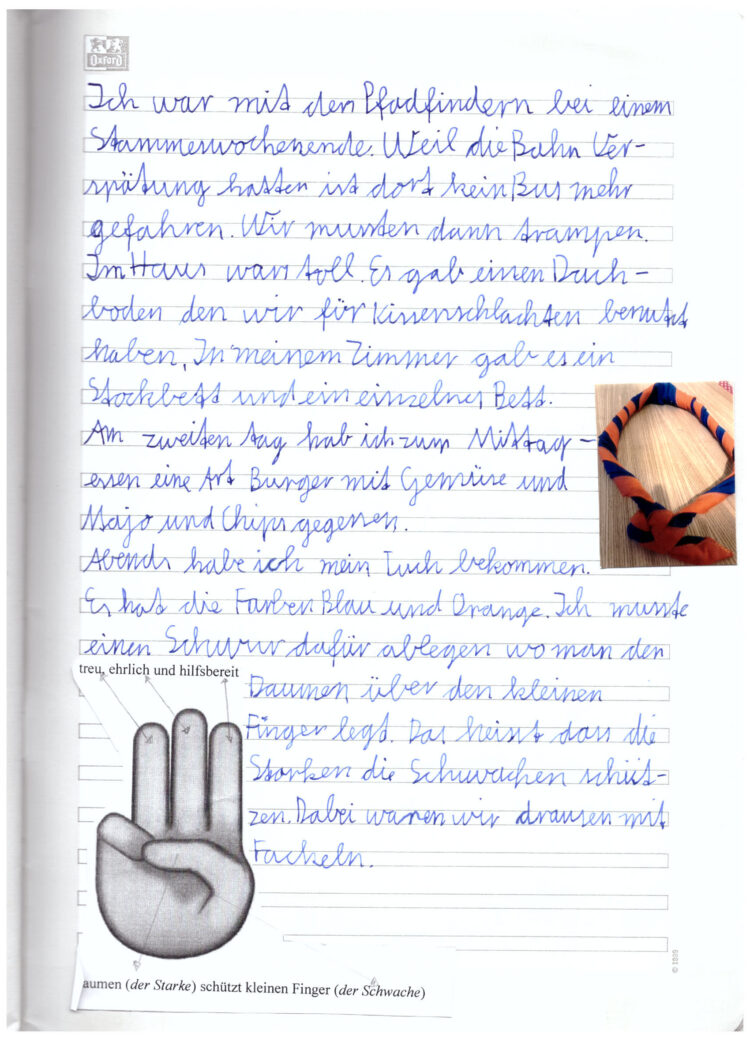 Oxford
Ich war mit den Pfadfindern bei einem
Stammeswochenende. Weil die Bahn Ver-
spätung hatten ist dort kein Bus mehr
gefahren. Wir mussten dann trampen.
Im Haus wars toll. Es gab einen Dach-
boden den wir für Kissenschlachten benutzt
haben. In meinem Zimmer gab es ein
Stockbett und ein einzelnes Bett.
Am zweiten tag hab ich zum Mittag-
essen eine Art Burger mit Gemüse und
Majo und Chips gegessen.
Abends habe ich mein Tuch bekommen.
Es hat die Farben Blau und Orange. Ich musste
einen Schwur dafür ablegen wo man den
treu, ehrlich und hilfsbereit
Daumen über den kleinen
Finger legt. Das heisst dass die
Starken die Schwachen schüt-
zen. Dabei waren wir drausen mit
Fackeln.
aumen (der Starke) schützt kleinen Finger (der Schwache)
© 1889